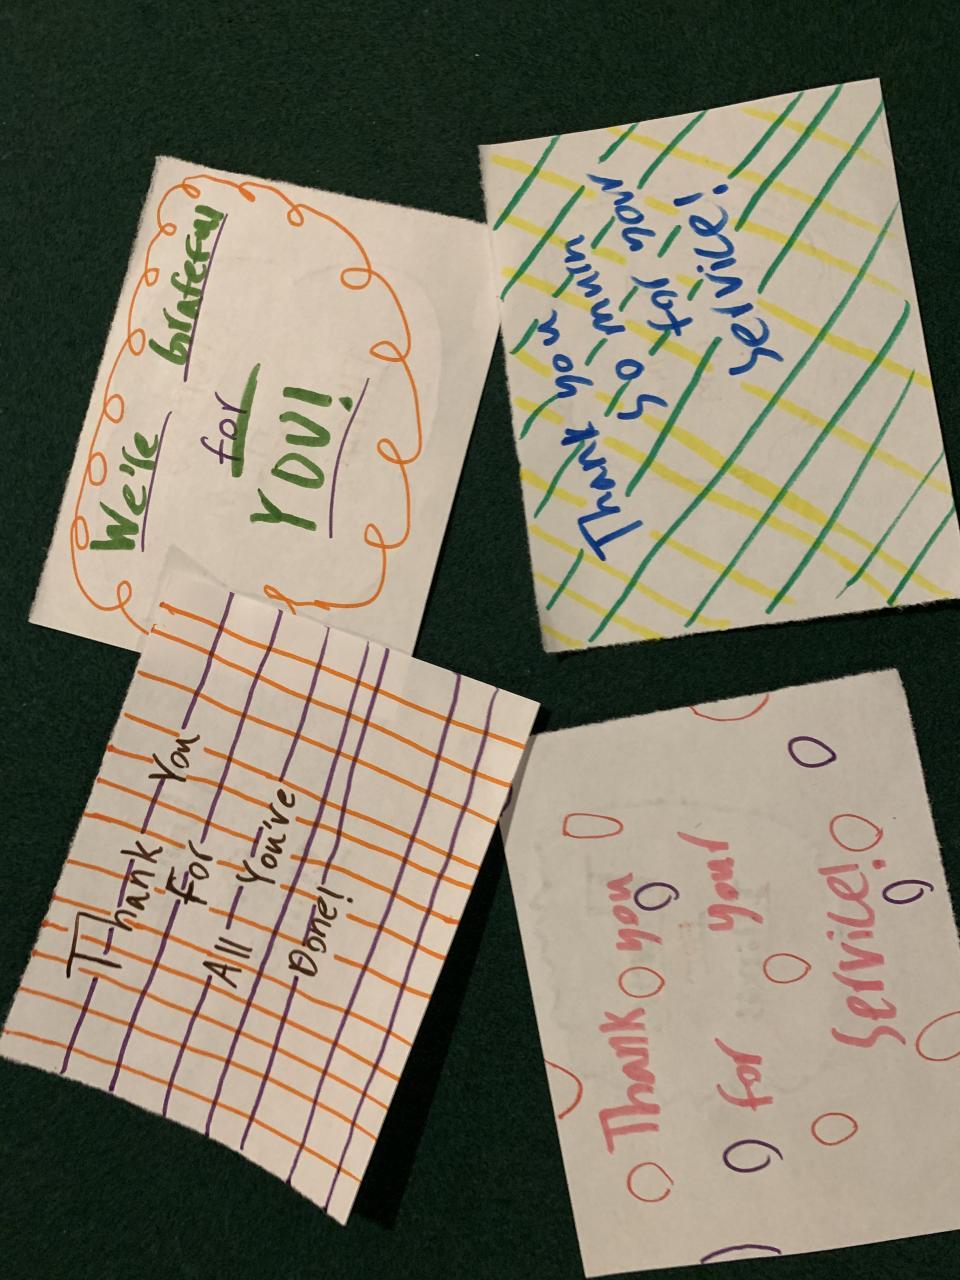 We're Grateful
for
YOU!
Thank you
so much
for your
service!
Thank You
For
All You've
Done!
Thank you
for your
service!